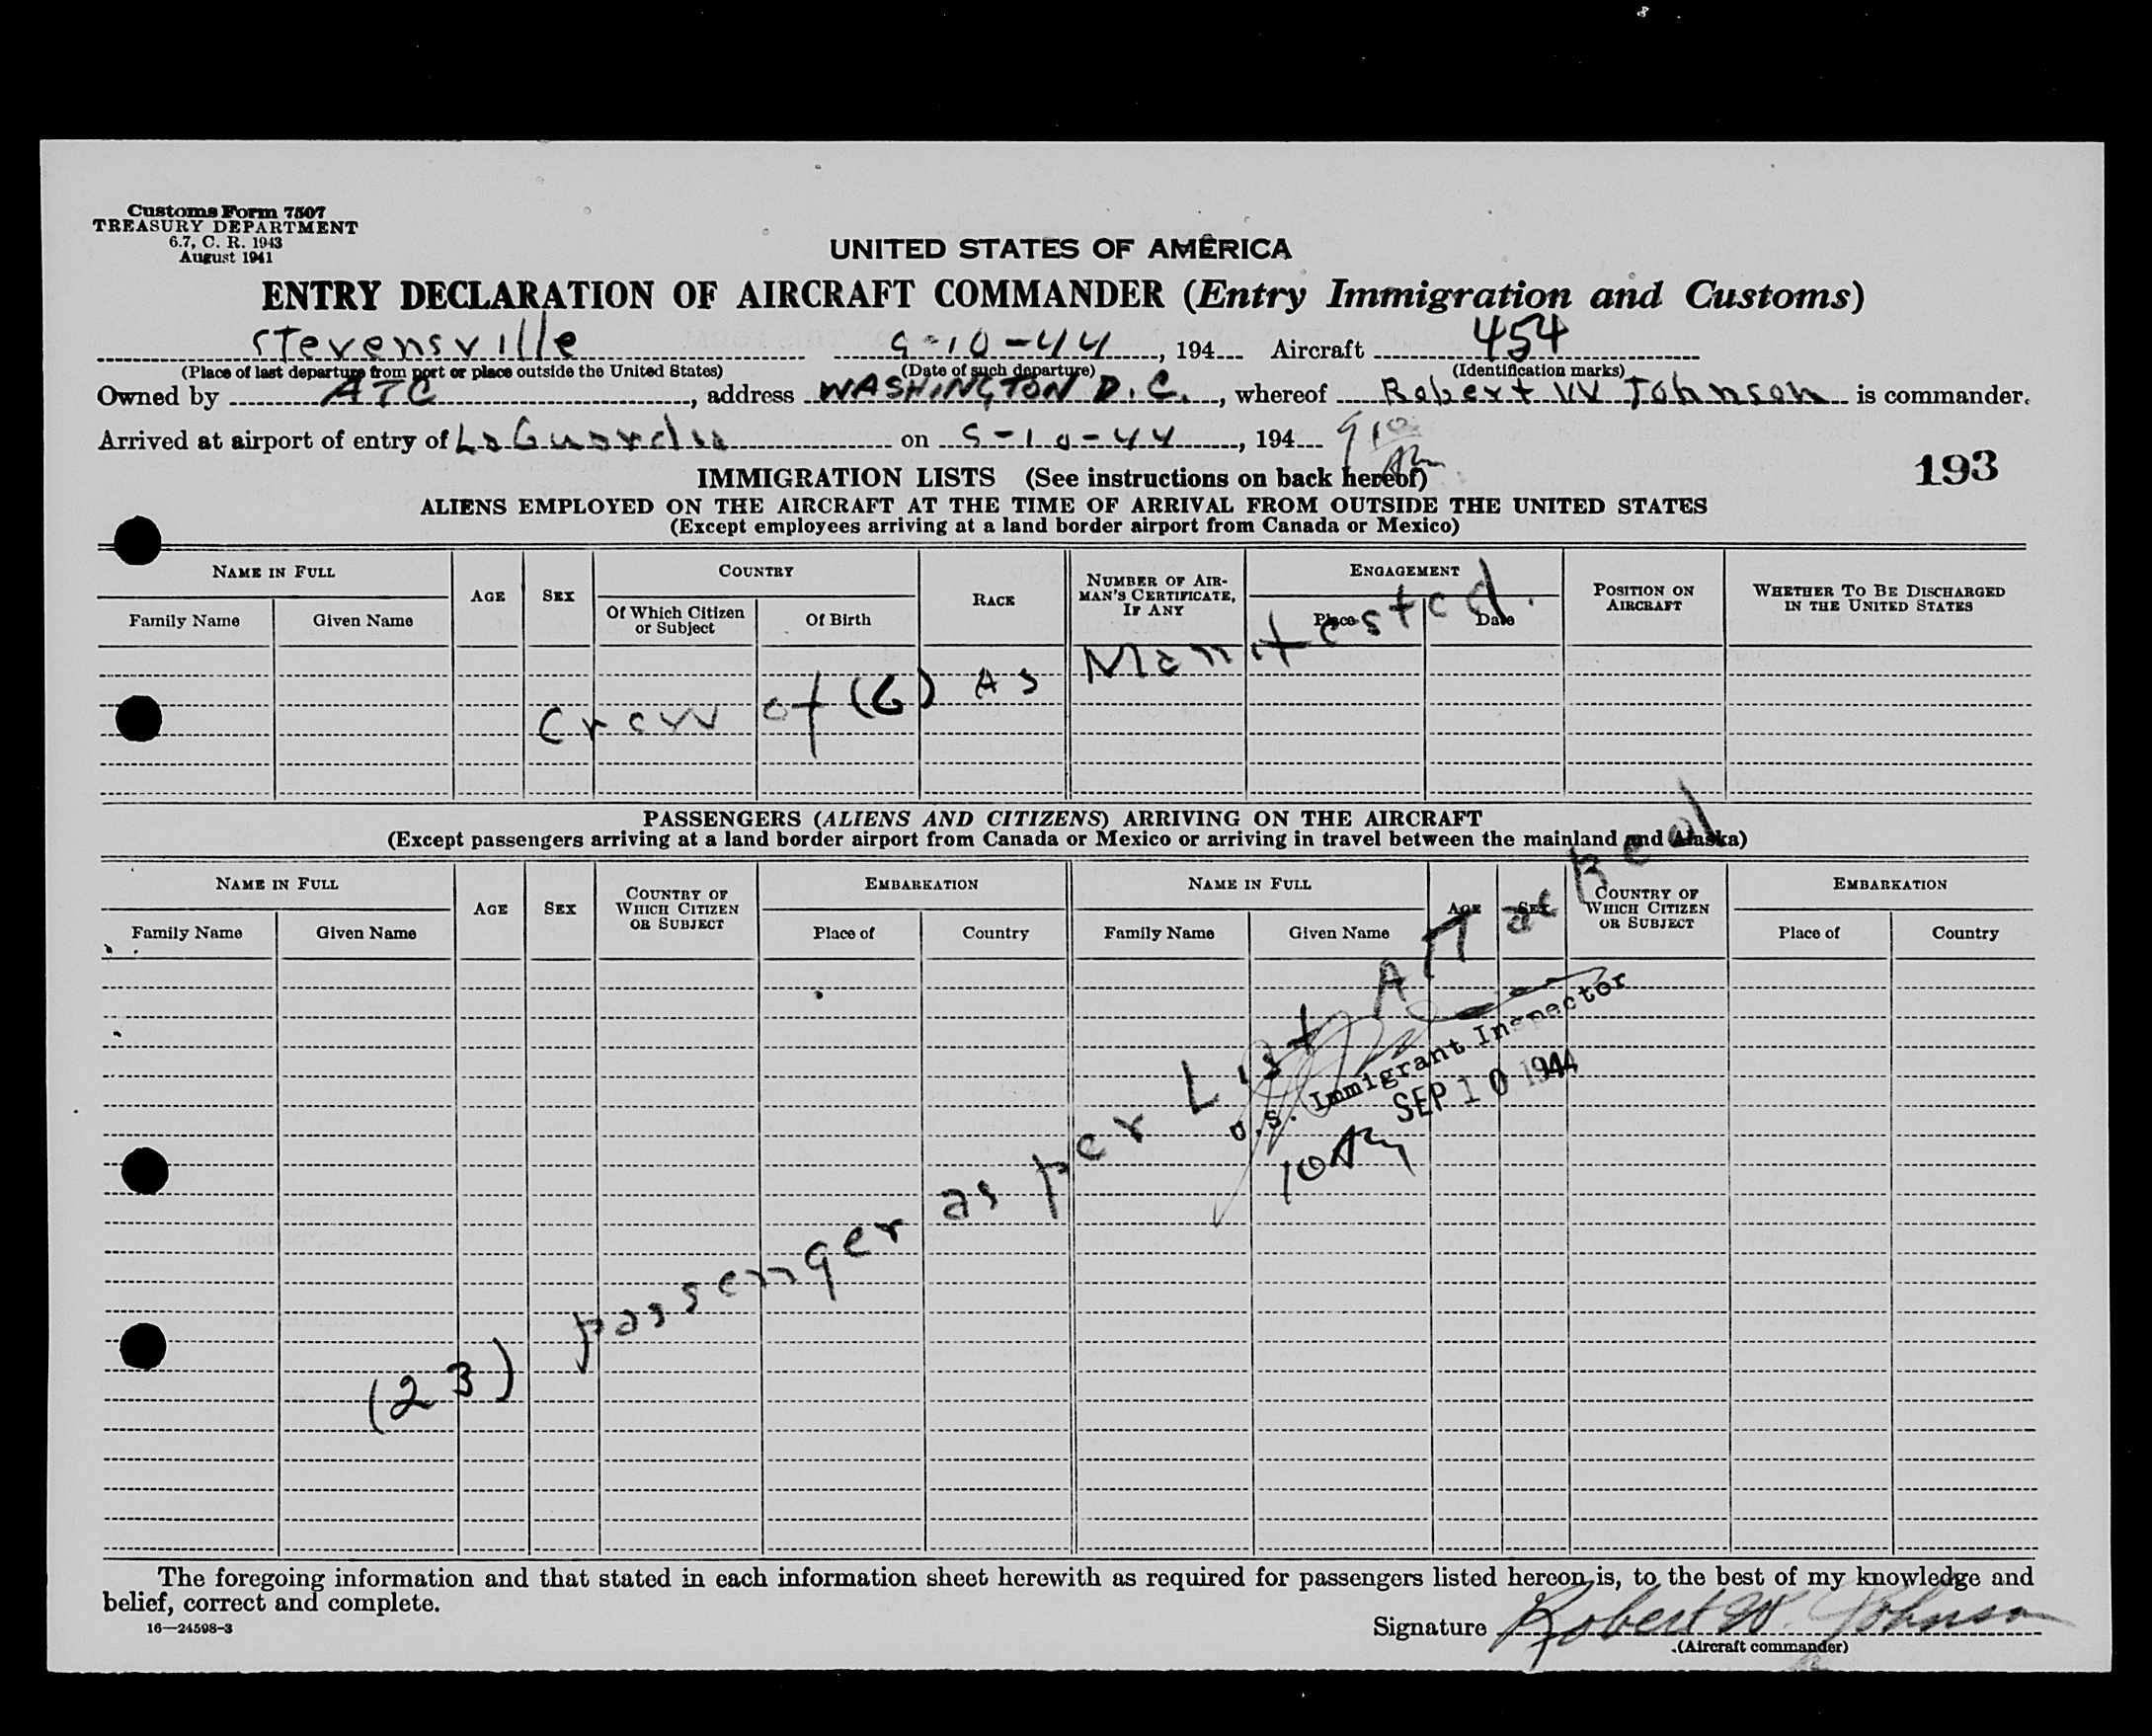 Customs Form 7507
TREASURY DEPARTMENT
6.7, C. R. 1943
August 1941
UNITED STATES OF AMERICA
ENTRY DECLARATION OF AIRCRAFT COMMANDER (Entry Immigration and Customs)
Stevensville 9-10-44, 194 Aircraft 454
(Place of last departure from port or place outside the United States) (Date of such departure) (Identification marks)
Owned by ATC, address WASHINGTON D.C., whereof Robert W Johnson is commander.
Arrived at airport of entry of LaGuardia on 9-10-44, 194 910 AM
IMMIGRATION LISTS (See instructions on back hereof)
193
ALIENS EMPLOYED ON THE AIRCRAFT AT THE TIME OF ARRIVAL FROM OUTSIDE THE UNITED STATES
(Except employees arriving at a land border airport from Canada or Mexico)
NAME IN FULL AGE SEX COUNTRY RACE NUMBER OF AIRMAN'S CERTIFICATE, IF ANY ENGAGEMENT POSITION ON AIRCRAFT WHETHER TO BE DISCHARGED IN THE UNITED STATES
Family Name Given Name Of Which Citizen or Subject Of Birth Place Date
Crew of (6) As Manifested.
PASSENGERS (ALIENS AND CITIZENS) ARRIVING ON THE AIRCRAFT
(Except passengers arriving at a land border airport from Canada or Mexico or arriving in travel between the mainland and Alaska)
NAME IN FULL AGE SEX COUNTRY OF WHICH CITIZEN OR SUBJECT EMBARKATION NAME IN FULL AGE SEX COUNTRY OF WHICH CITIZEN OR SUBJECT EMBARKATION
Family Name Given Name Place of Country Family Name Given Name Place of Country
(23) passenger as per List
U.S. Immigrant Inspector
SEP 10 1944
10 AM
The foregoing information and that stated in each information sheet herewith as required for passengers listed hereon is, to the best of my knowledge and
belief, correct and complete.
16—24598-3
Signature Robert W. Johnson
(Aircraft commander)